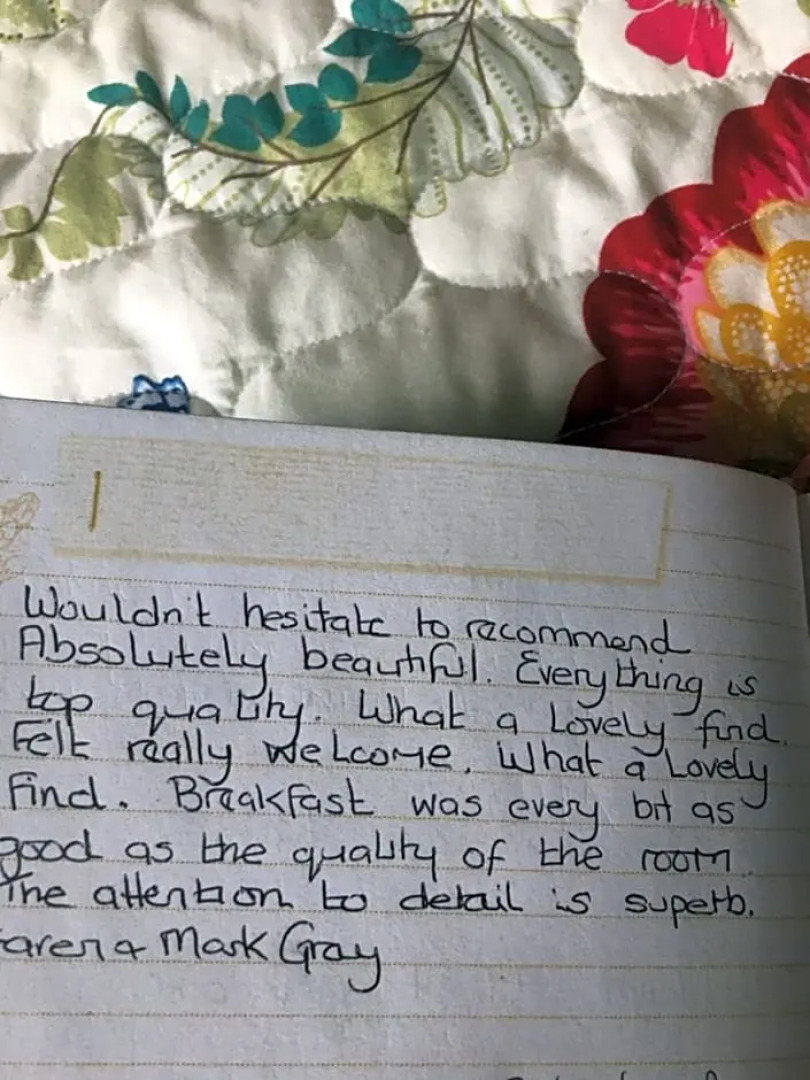 Wouldn't hesitate to recommend
Absolutely beautiful. Everything is
top quality. What a Lovely find.
Felt really welcome. What a Lovely
find. Breakfast was every bit as
good as the quality of the room.
The attention to detail is superb.
aren & Mark Gray